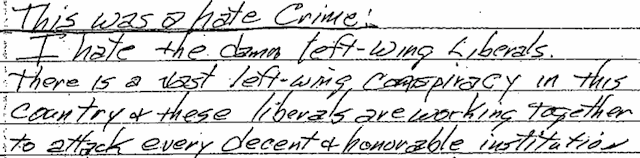 This was a hate Crime:
I hate the damn left-wing Liberals.
There is a vast left-wing Conspiracy in this
country & these liberals are working together
to attack every decent & honorable institution